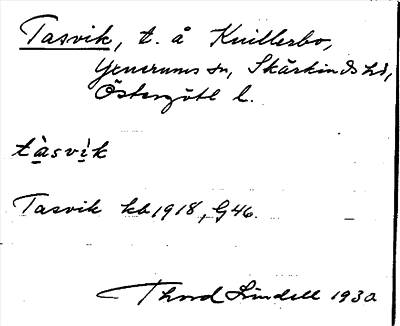 Tasvik, t. å Knillerbo,
Yxnerums sn, Skärkinds hd,
Östergötl l.
tàsvìk
Tasvik kb 1918, G46.
Thord Lindell 1930